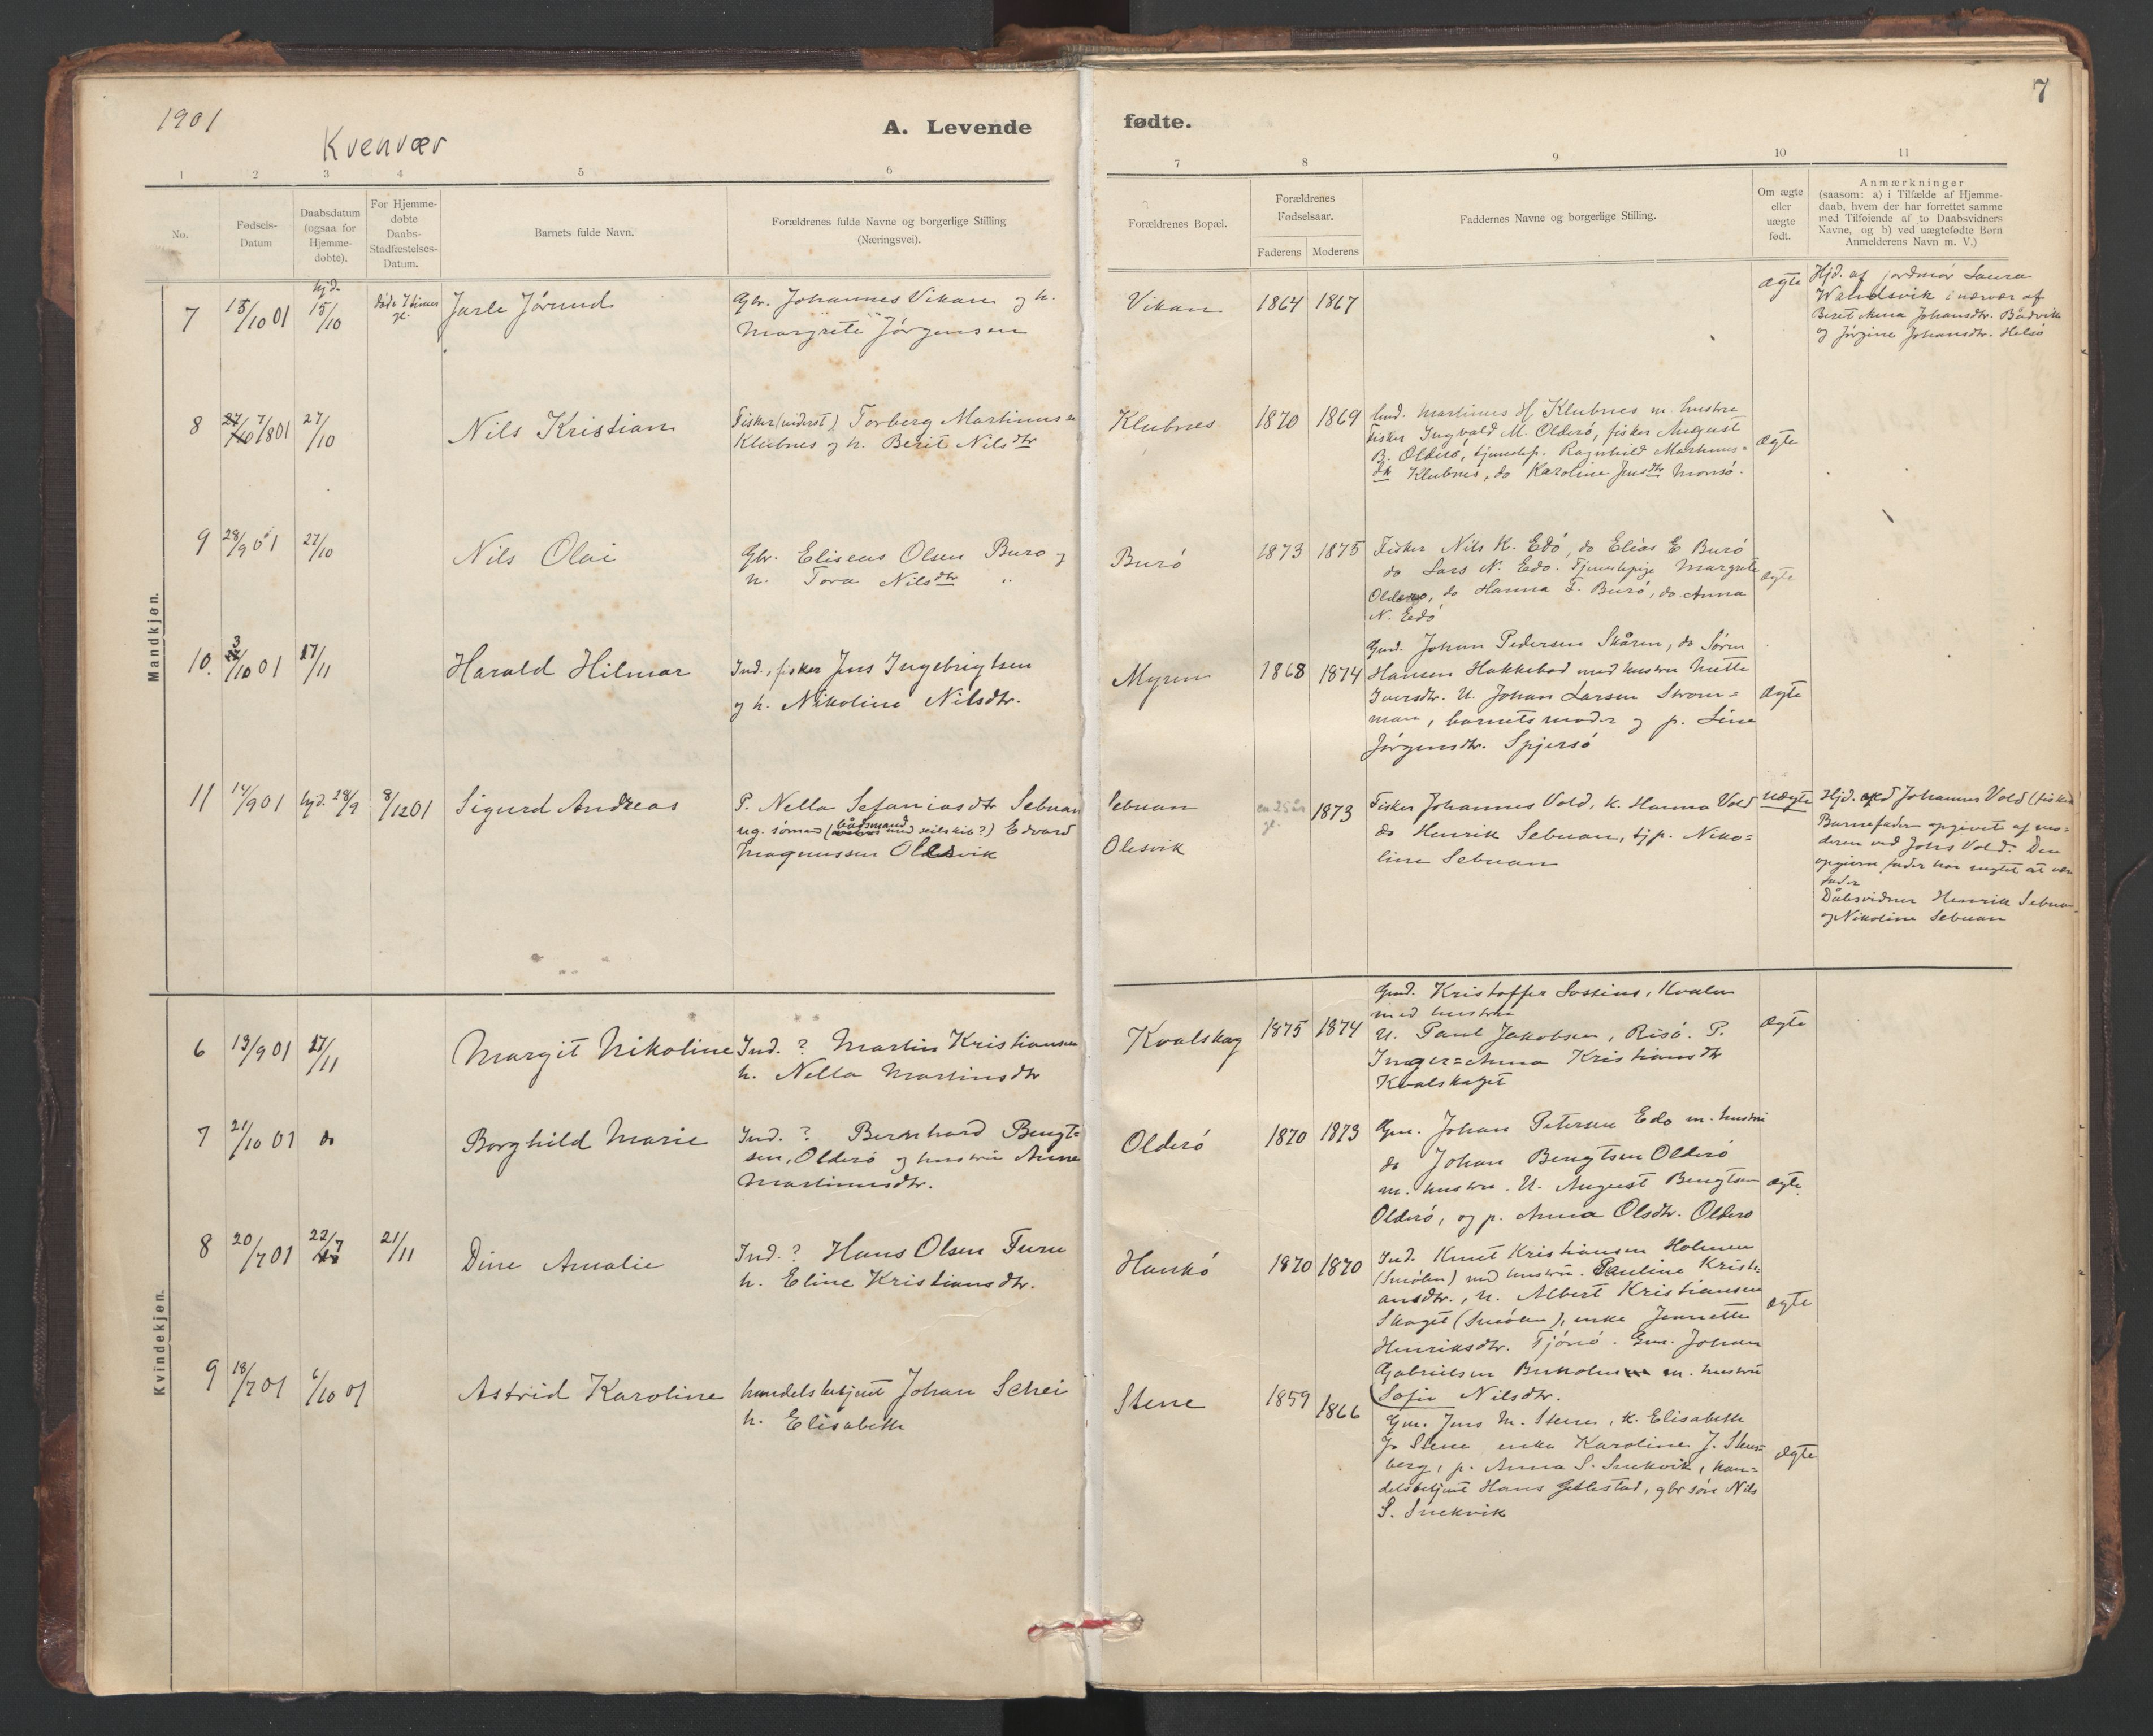 1901
Kvenvær
A. Levende fødte.
7
1 2 3 4 5 6 7 8 9 10 11
No.
Fødsels-
Datum
Daabsdatum
(ogsaa for
Hjemme-
døbte).
For Hjemme-
døbte
Daabs-
Stadfæstelses-
Datum.
Barnets fulde Navn.
Forældrenes fulde Navne og borgerlige Stilling
(Næringsvei).
Forældrenes Bopæl.
Forældrenes
Fødselsaar.
Faderens Moderens
Faddernes Navne og borgerlige Stilling.
Om ægte
eller
uægte
født.
Anmærkninger
(saasom: a) i Tilfælde af Hjemme-
daab, hvem der har forrettet samme
med Tilføiende af to Daabsvidners
Navne, og b) ved uægtefødte Børn
Anmelderens Navn m. V.)
Mandkjøn.
7
15/10 01
hjd.
15/10
døde 7 timer
gl.
Jarle Jørund
Gbr. Johannes Vikan og h.
Margrete Jørgensen
Vikan
1864 1867
ægte
Hjd. af jordmor Laura
Wandsvik i nærvær af
Beret Anna Johansdtr. Bådvik
og Jørgine Johansdtr. Helsø
8
27/10 7/8 01
27/10
Nils Kristian
Fisker (inderst) Torberg Martinusen
Klubnes og h. Berit Nilsdtr
Klubnes
1870 1869
Ind. Martinus Klubnes m. hustru
Fisker Ingvald M. Olderø, fisker August
B. Olderø, tjenestep. Ragnhild Martinus=
dtr Klubnes, do Karoline Jensdtr Monsø.
Ægte
9
28/9 01
27/10
Nils Olai
Gbr. Eliseus Olsen Burø og
h. Tora Nilsdtr "
Burø
1873 1875
Fisker Nils K. Edø, do Elias E Burø
do Lars N. Edø. Tjenestepige Margrete
Olderø, do Hanna F. Burø, do Anna
N. Edø
Ægte
10.
3/10 01
17/11
Harald Hilmar
Ind., fisker Jens Ingebrigtsen
og h. Nikoline Nilsdtr.
Myren
1868 1874
Gmd. Johan Pedersen Skåren, do Søren
Hansen Hakkebod med hustru Mette
Iversdtr. U. Johan Larsen Strom=
man, barnets moder og p. Line
Jørgensdtr. Spjersø
Ægte
11
14/9 01
hjd. 28/9
8/12 01
Sigurd Andreas
P. Nella Sefaniasdtr Sebuan
ug. sømand (båtsmand med seilskib?) Edvard
Magnussen Olesvik
Sebuan
Olesvik
ca 25 år
gl.
1873
Fisker Johannes Vold, k. Hanna Vold
do Henrik Sebuan, tjp. Niko=
line Sebuan
Uægte
Hjd. ved Johannes Vold (fisker)
Barnefader opgivet af mo=
deren ved Johs Vold. Den
opgivne fader har nægtet at være
fader
Dåbsvidner Henrik Sebuan
og Nikoline Sebuan
Kvindekjøn.
6
13/9 01
17/11
Margit Nikoline
Ind. ? Martin Kristiansen
h. Nella Martinsdtr
Kvalskag
1875 1874
Gmd. Kristoffer Kvalen
med hustru
U. Paul Jakobsen, Risø. P.
Inger=Anna Kristiansdtr
Kvalskaget
Ægte
7
21/10 01
do
Borghild Marie
Ind. ? Bernhard Bengt=
sen, Olderø og hustru Anne
Martinusdtr.
Olderø
1870 1873
Gm. Johan Petersen Edø m. hustru
do Johan Bengtsen Olderø
m. hustru. U. August Bengtsen
Olderø, og p. Anna Olsdtr. Olderø
Ægte
8
20/7 01
22/7
21/11
Dine Amalie
Ind. ? Hans Olsen Furu
h. Eline Kristiansdtr.
Hankø
1870 1870
Ind. Knut Kristiansen Holmen
(Smølen) med hustru. Pauline Kristi=
ansdtr., U. Albert Kristiansen
Skaget (Smølen), enke Jennette
Henriksdtr. Tjørnø. Gm. Johan
Gabrielsen m. hustru
Sofie Nilsdtr.
Ægte
9
18/7 01
6/10 01
Astrid Karoline
handelsbetjent Johan Schei
h. Elisabeth
Stene
1859
1866
Gm. Jens M. Stene, k. Elisabeth
J. Stene enke Karoline J. Stens=
berg, p. Anna S. Snekvik, han=
delsbetjent Hans Gellestad, gbr søn Nils
S. Snekvik
Ægte